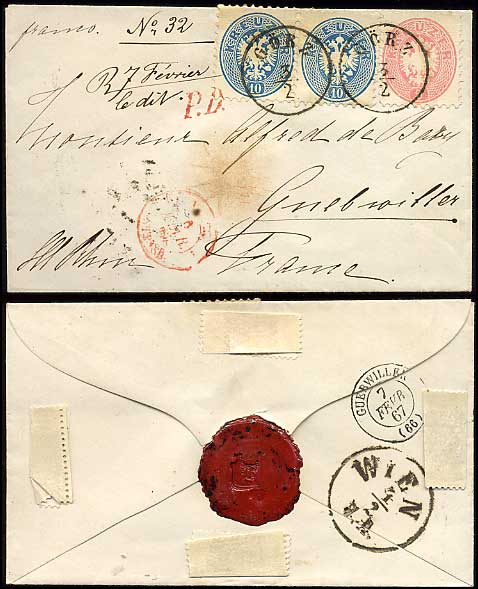 franco.
No. 32
R 7 Février
le dit.
P.D.
KREUZER
10
GÖRZ
3
2
KREUZER
10
GÖRZ
3
2
KREUZER
Monsieur Alfred de Bary
Guebwiller
Ht Rhin
France.
GUEBWILLER
7
FEVR
67
(66)
WIEN